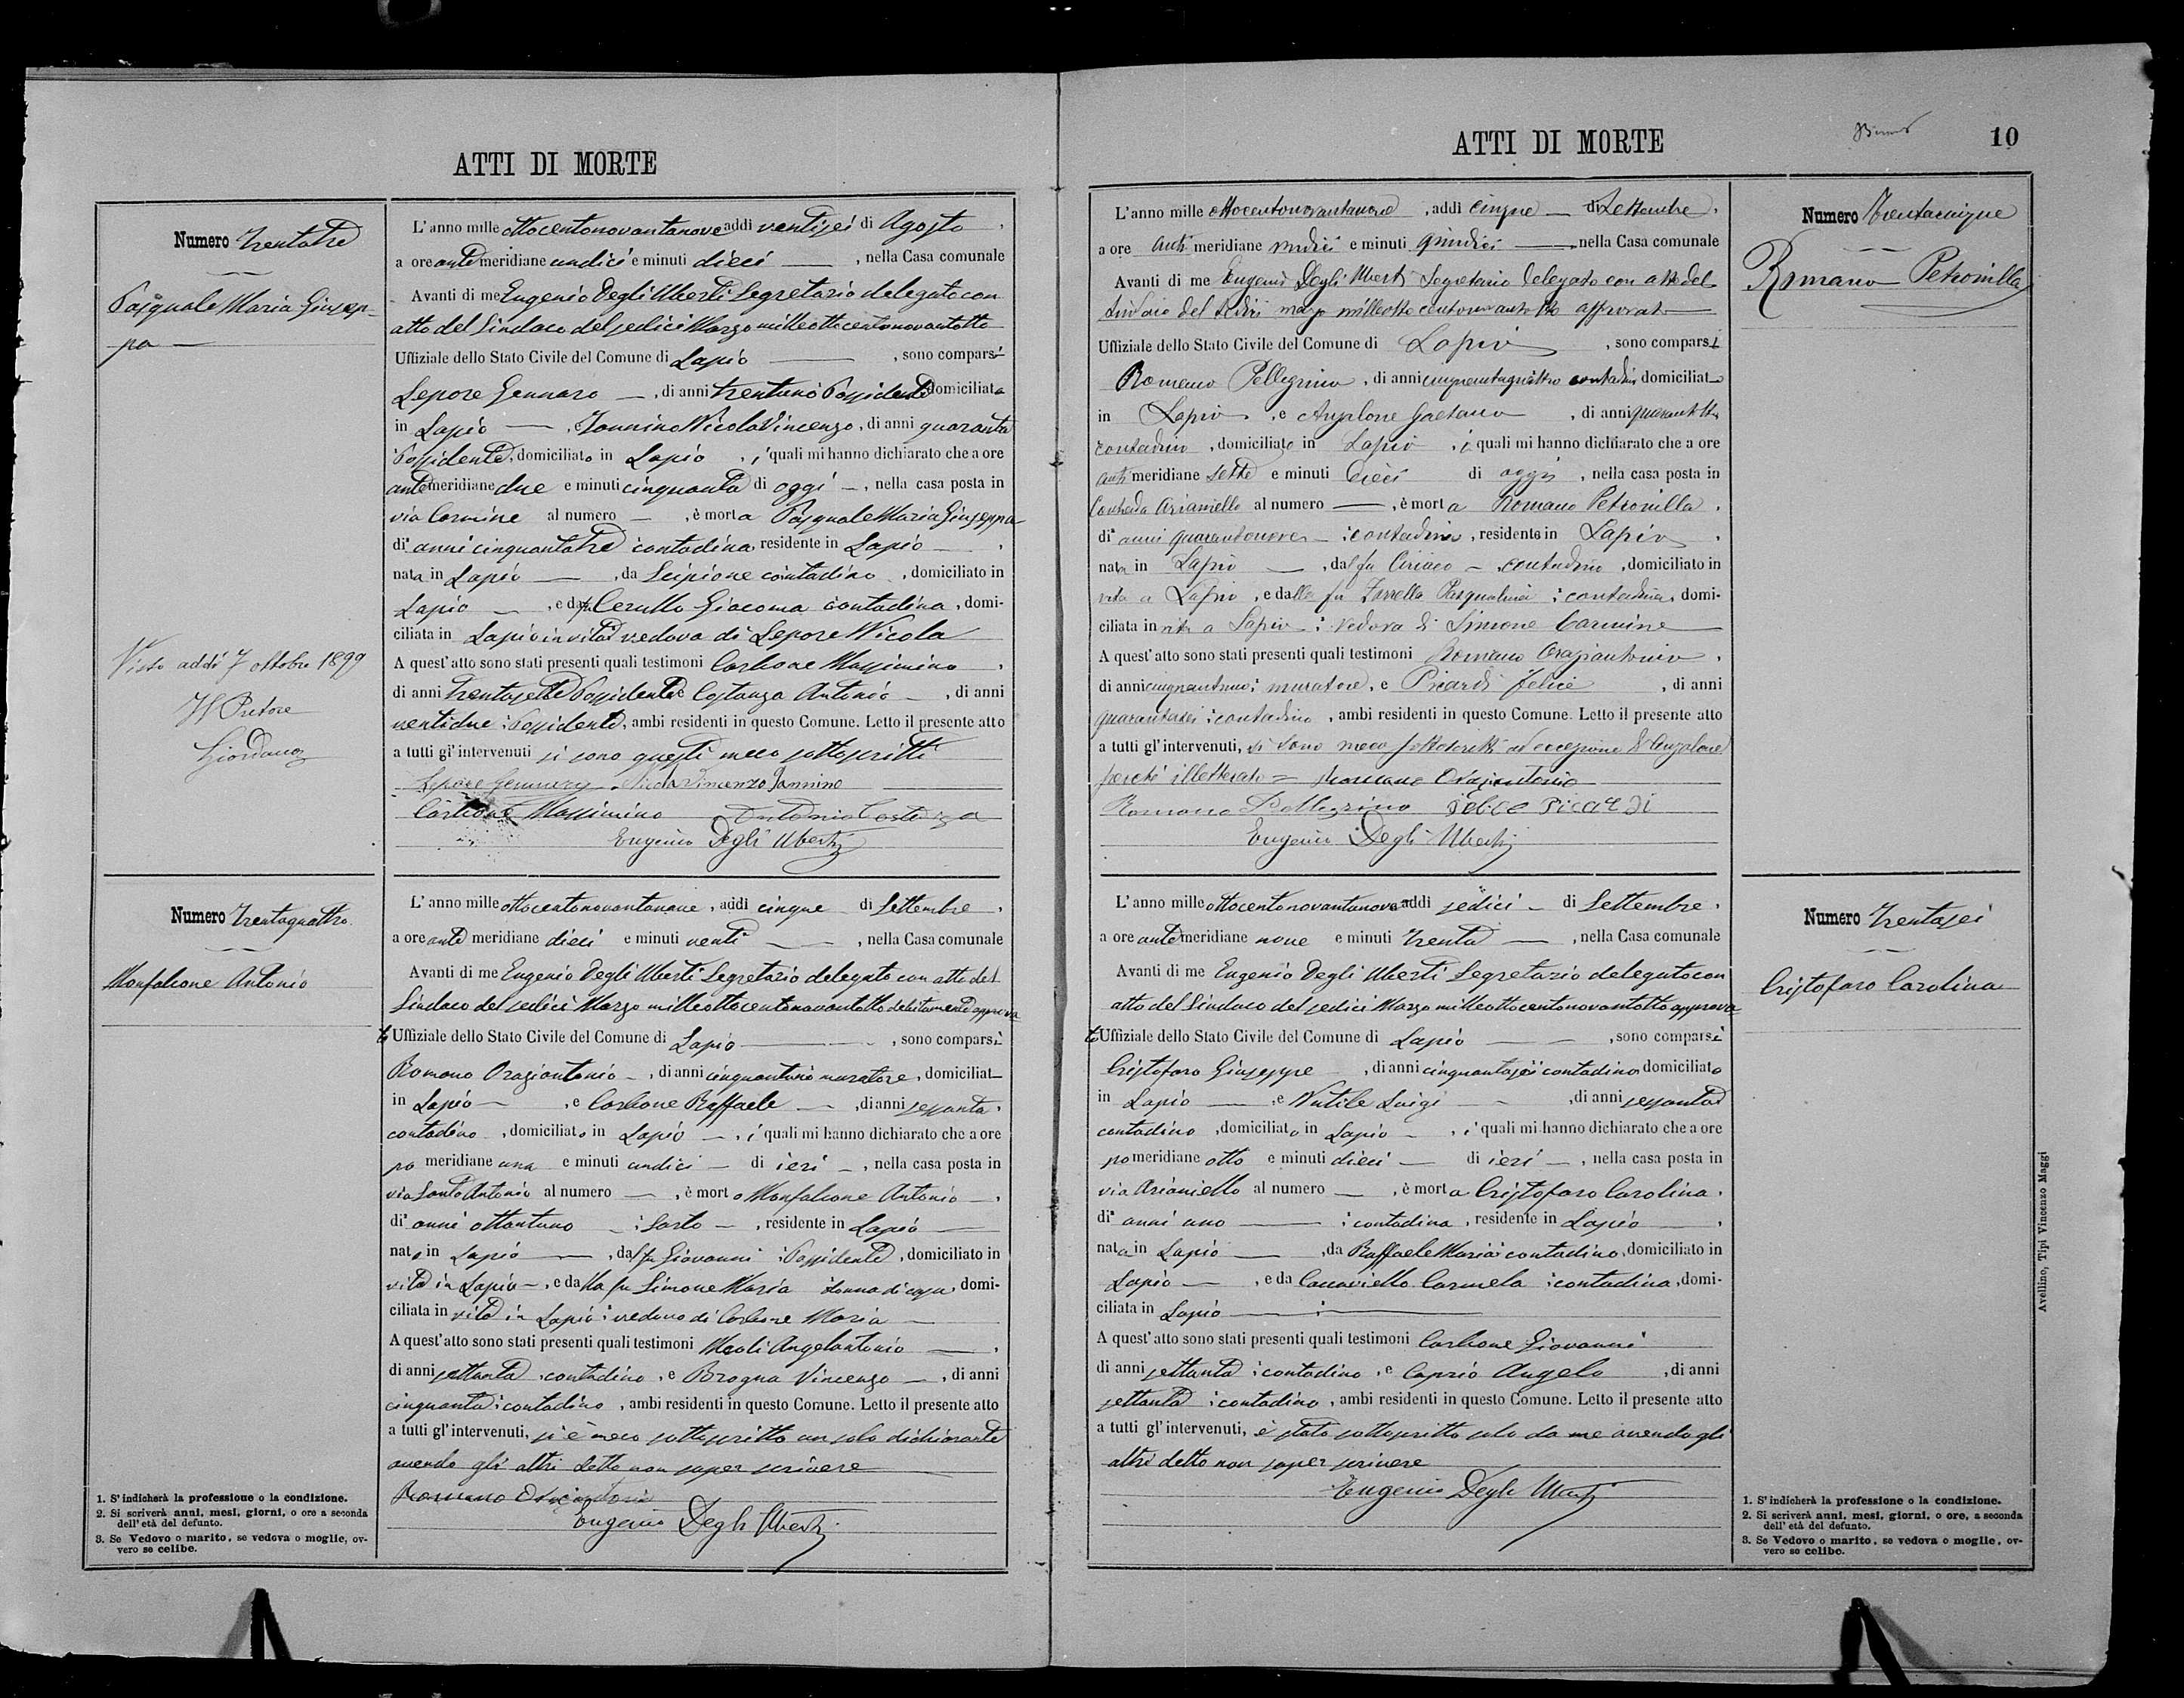 ATTI DI MORTE
Numero Trentatre
Pasquale Maria Giusep-
pa
Visto addì 7 ottobre 1899
Il Pretore
Giordano
L'anno mille ottocentonovantanove addì ventisei di Agosto,
a ore antemeridiane undici e minuti dieci, nella Casa comunale
Avanti di me Eugenio Degli Uberti Segretario delegato con
atto del Sindaco del sedici Marzo milleottocentonovantotto
Uffiziale dello Stato Civile del Comune di Lapio, sono comparsi
Lepore Gennaro, di anni trentuno Possidente domiciliato
in Lapio, Jannino Nicola Vincenzo, di anni quaranta
Possidente, domiciliato in Lapio, i quali mi hanno dichiarato che a ore
antemeridiane due e minuti cinquanta di oggi, nella casa posta in
via Carmine al numero —, è morta Pasquale Maria Giuseppa
di anni cinquantatre contadina, residente in Lapio,
nata in Lapio, da Scipione contadino, domiciliato in
Lapio, e da fu Cerullo Giacoma contadina, domi-
ciliata in Lapio in vita vedova di Lepore Nicola
A quest'atto sono stati presenti quali testimoni Carbone Massimino,
di anni trentasette Possidente e Costanza Antonio, di anni
ventidue Possidente, ambi residenti in questo Comune. Letto il presente atto
a tutti gl'intervenuti si sono questi meco sottoscritti
Lepore Gennaro Nicola Vincenzo Jannino
Carbone Massimino Antonio Costanza
Eugenio Degli Uberti
Numero Trentaquattro
Monfalcone Antonio
L'anno mille ottocentonovantanove, addì cinque di Settembre,
a ore ante meridiane dieci e minuti venti, nella Casa comunale
Avanti di me Eugenio Degli Uberti Segretario delegato con atto del
Sindaco del sedici Marzo milleottocentonovantotto debitamente approva-
to Uffiziale dello Stato Civile del Comune di Lapio, sono comparsi
Romano Oraziantonio, di anni cinquantuno muratore, domiciliat
in Lapio, e Carbone Raffaele, di anni sessanta,
contadino, domiciliato in Lapio, i quali mi hanno dichiarato che a ore
po meridiane una e minuti undici di ieri, nella casa posta in
via Santo Antonio al numero —, è morto Monfalcone Antonio,
di anni ottantuno Sarto, residente in Lapio
nato in Lapio, dal fu Giovanni Possidente, domiciliato in
vita in Lapio, e dalla fu Simone Maria donna di casa, domi-
ciliata in vita in Lapio vedovo di Carbone Maria
A quest'atto sono stati presenti quali testimoni Meoli Angelantonio,
di anni settanta, contadino, e Brogna Vincenzo, di anni
cinquanta contadino, ambi residenti in questo Comune. Letto il presente atto
a tutti gl'intervenuti, si è meco sottoscritto un solo dichiarante
avendo gli altri detto non saper scrivere
Romano Oraziantonio
Eugenio Degli Uberti
1. S'indicherà la professione o la condizione.
2. Si scriverà anni, mesi, giorni, o ore a seconda
dell'età del defunto.
3. Se Vedovo o marito, se vedova o moglie, ov-
vero se celibe.
ATTI DI MORTE
10
L'anno mille ottocentonovantanove, addì cinque di Settembre,
a ore anti meridiane undici e minuti quindici, nella Casa comunale
Avanti di me Eugenio Degli Uberti Segretario delegato con atto del
Sindaco del sedici marzo milleottocentonovantotto approvato
Uffiziale dello Stato Civile del Comune di Lapio, sono comparsi
Romano Pellegrino, di anni cinquantaquattro contadino domiciliato
in Lapio, e Anzalone Gaetano, di anni quarantotto
contadino, domiciliato in Lapio, i quali mi hanno dichiarato che a ore
anti meridiane sette e minuti dieci di oggi, nella casa posta in
Contrada Arianiello al numero —, è morta Romano Petronilla,
di anni quarantanove contadina, residente in Lapio,
nata in Lapio, dal fu Ciriaco, contadino, domiciliato in
vita a Lapio, e dalla fu Zarrella Pasqualina contadina, domi-
ciliata in vita a Lapio vedova di Simone Carmine
A quest'atto sono stati presenti quali testimoni Romano Oraziantonio,
di anni cinquantuno muratore, e Picardi Felice, di anni
quarantasei contadino, ambi residenti in questo Comune. Letto il presente atto
a tutti gl'intervenuti, si sono meco sottoscritti ad eccezione di Anzalone
perché illetterato = Romano Oraziantonio
Romano Pellegrino Felice Picardi
Eugenio Degli Uberti
Numero Trentacinque
Romano Petronilla
L'anno mille ottocentonovantanove addì sedici di Settembre,
a ore ante meridiane nove e minuti trenta, nella Casa comunale
Avanti di me Eugenio Degli Uberti Segretario delegato con
atto del Sindaco del sedici Marzo milleottocentonovantotto approva-
to Uffiziale dello Stato Civile del Comune di Lapio, sono comparsi
Cristofaro Giuseppe, di anni cinquantasei contadino domiciliato
in Lapio, e Nutile Luigi, di anni sessanta
contadino, domiciliato in Lapio, i quali mi hanno dichiarato che a ore
pomeridiane otto e minuti dieci di ieri, nella casa posta in
via Arianiello al numero —, è morta Cristofaro Carolina,
di anni uno contadina, residente in Lapio,
nata in Lapio, da Raffaele Maria contadino, domiciliato in
Lapio, e da Caccaviello Carmela contadina, domi-
ciliata in Lapio
A quest'atto sono stati presenti quali testimoni Carbone Giovanni
di anni settanta contadino, e Caprio Angelo, di anni
settanta contadino, ambi residenti in questo Comune. Letto il presente atto
a tutti gl'intervenuti, è stato sottoscritto solo da me avendo gli
altri detto non saper scrivere
Eugenio Degli Uberti
Numero Trentasei
Cristofaro Carolina
1. S'indicherà la professione o la condizione.
2. Si scriverà anni, mesi, giorni, o ore, a seconda
dell'età del defunto.
3. Se Vedovo o marito, se vedova o moglie, ov-
vero se celibe.
Avellino, Tipi Vincenzo Maggi